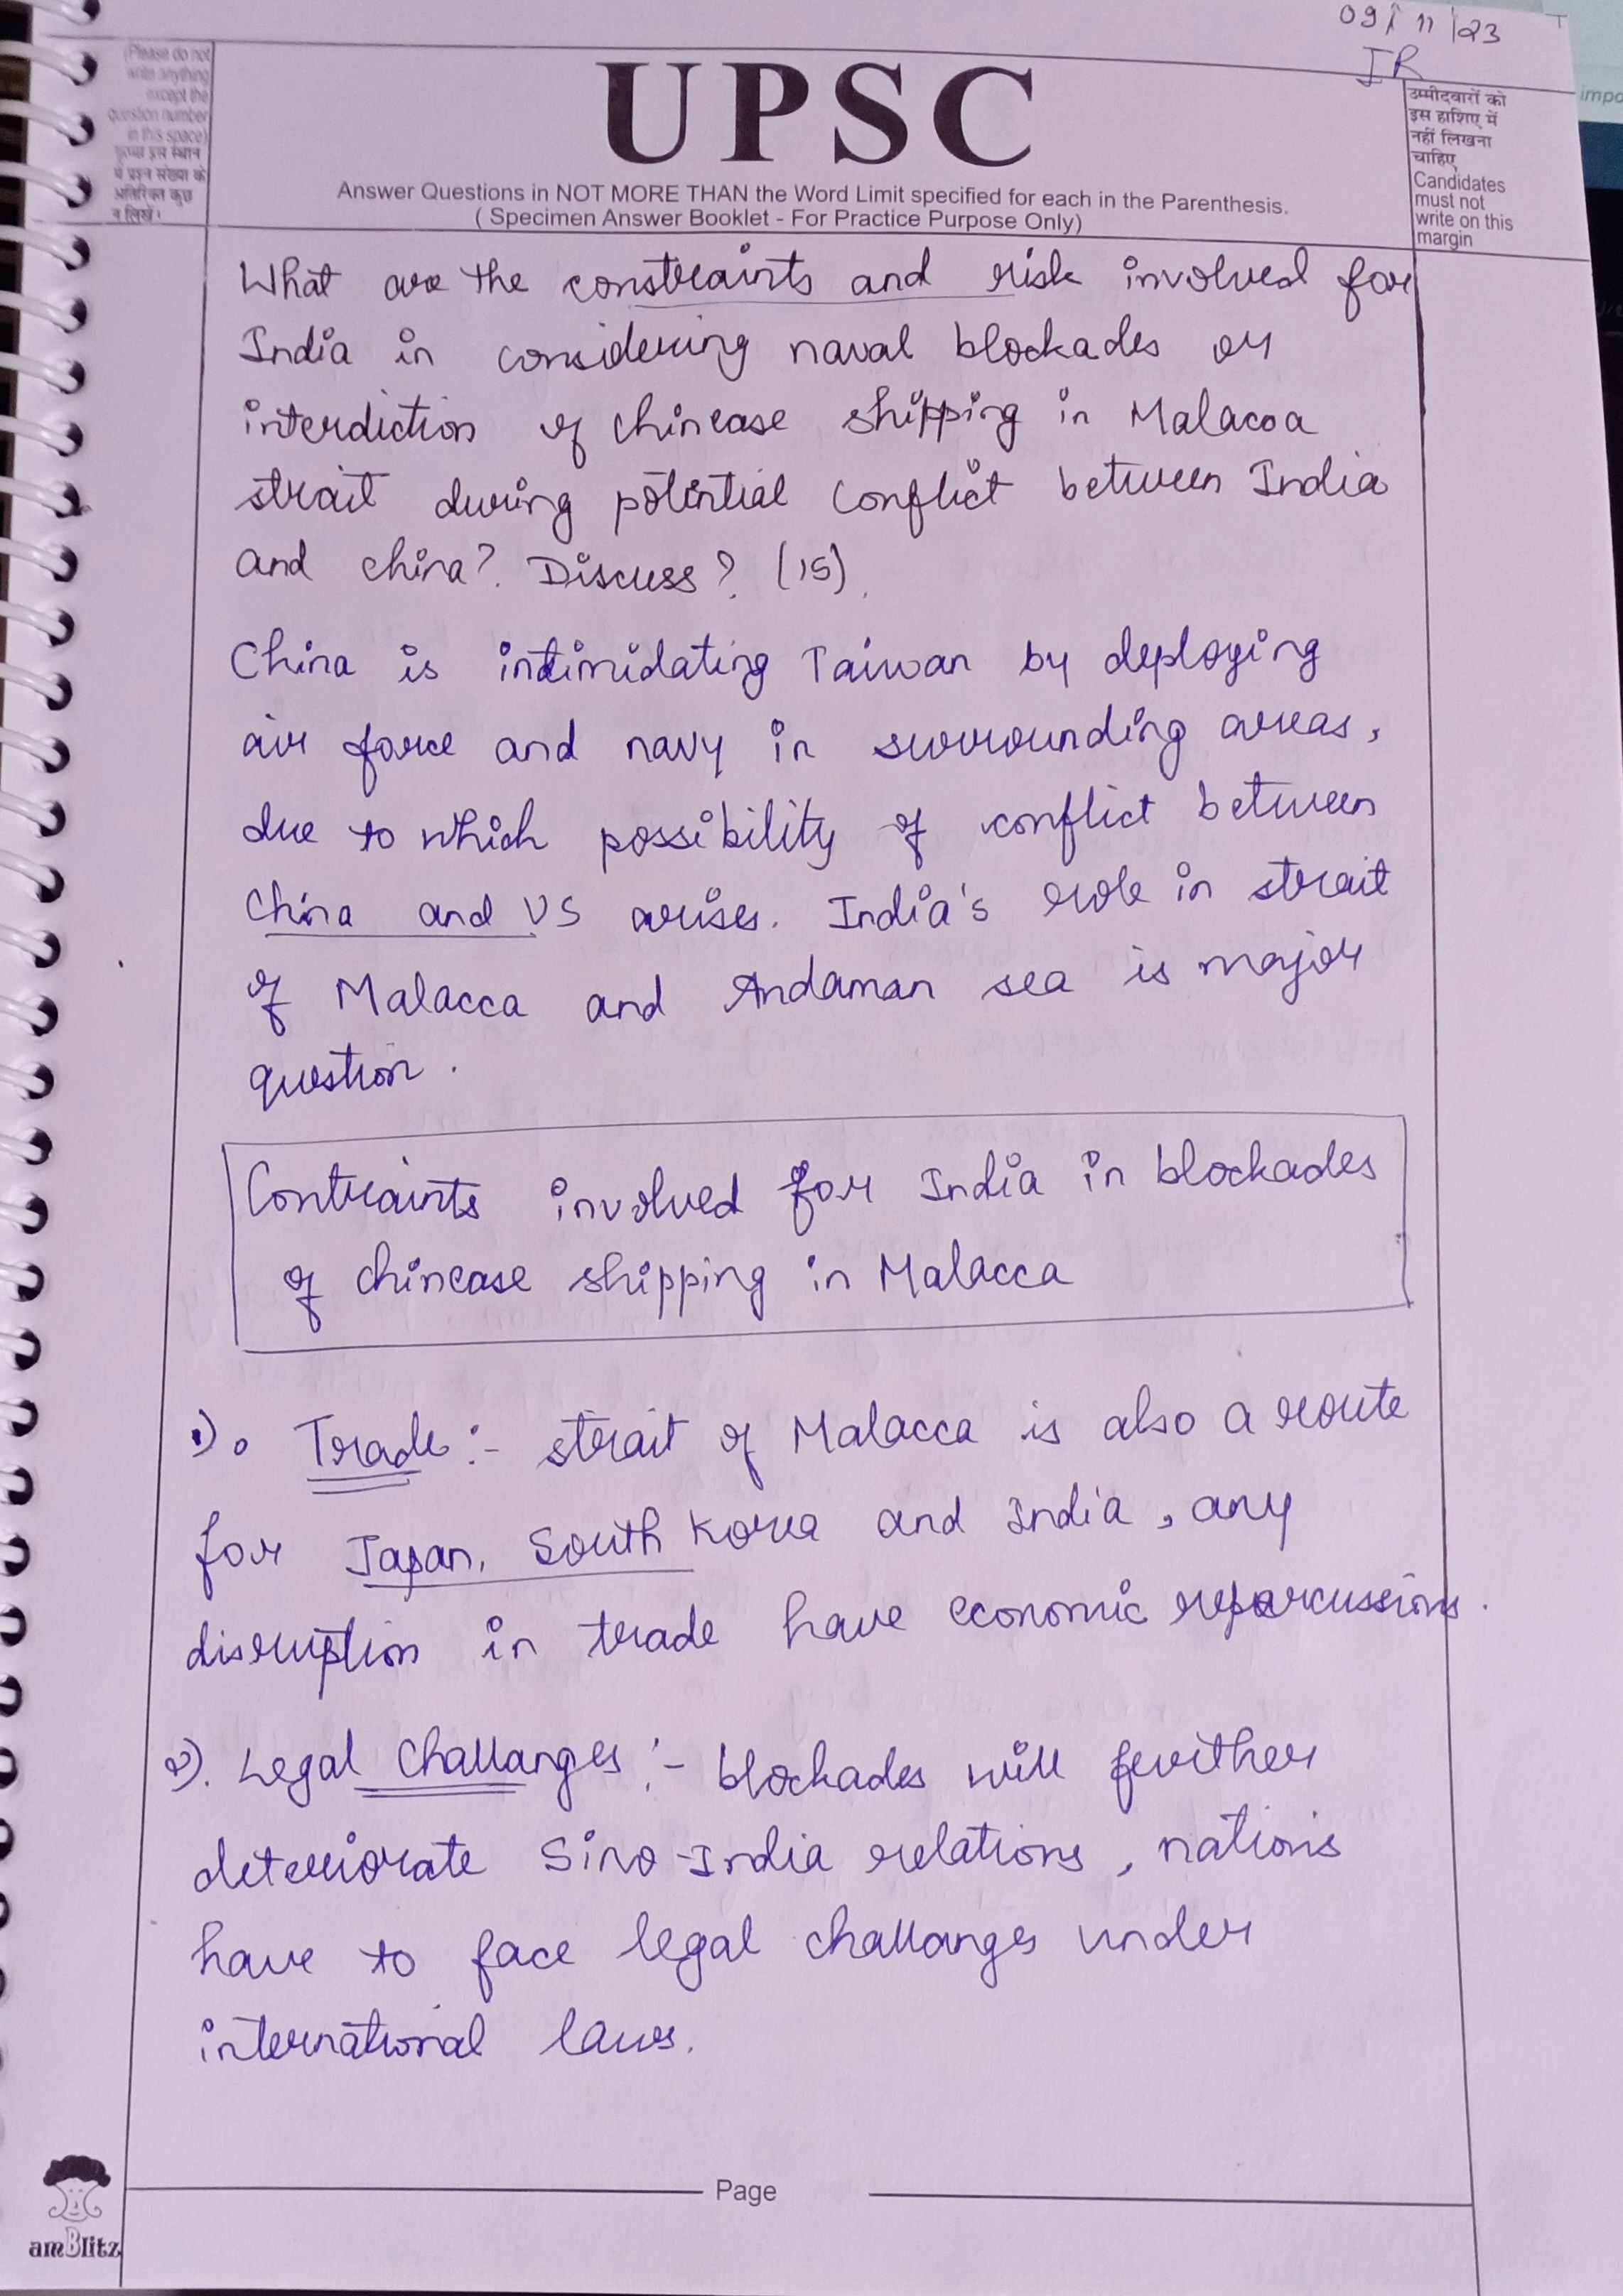 09/11/23
IR
(Please do not
write anything
except the
question number
in this space)
कृपया इस स्थान
में प्रश्न संख्या के
अतिरिक्त कुछ
न लिखें।
UPSC
Answer Questions in NOT MORE THAN the Word Limit specified for each in the Parenthesis.
( Specimen Answer Booklet - For Practice Purpose Only)
उम्मीदवारों को
इस हाशिए में
नहीं लिखना
चाहिए
Candidates
must not
write on this
margin
impo
What are the constraints and risk involved for
India in considering naval blockades or
interdiction of chinease shipping in Malacca
strait during potential conflict between India
and china? Discuss? (15).
China is intimidating Taiwan by deploying
air force and navy in surrounding areas,
due to which possibility of conflict between
China and US arises. India's role in strait
of Malacca and Andaman sea is major
question.
Contraints involved for India in blockades
of chinease shipping in Malacca
1). Trade :- strait of Malacca is also a route
for Japan, South Korea and India, any
disruption in trade have economic repercussions.
2). Legal Challanges :- blockades will further
deteriorate Sino-India relations, nations
have to face legal challanges under
international laws.
Page
amBlitz